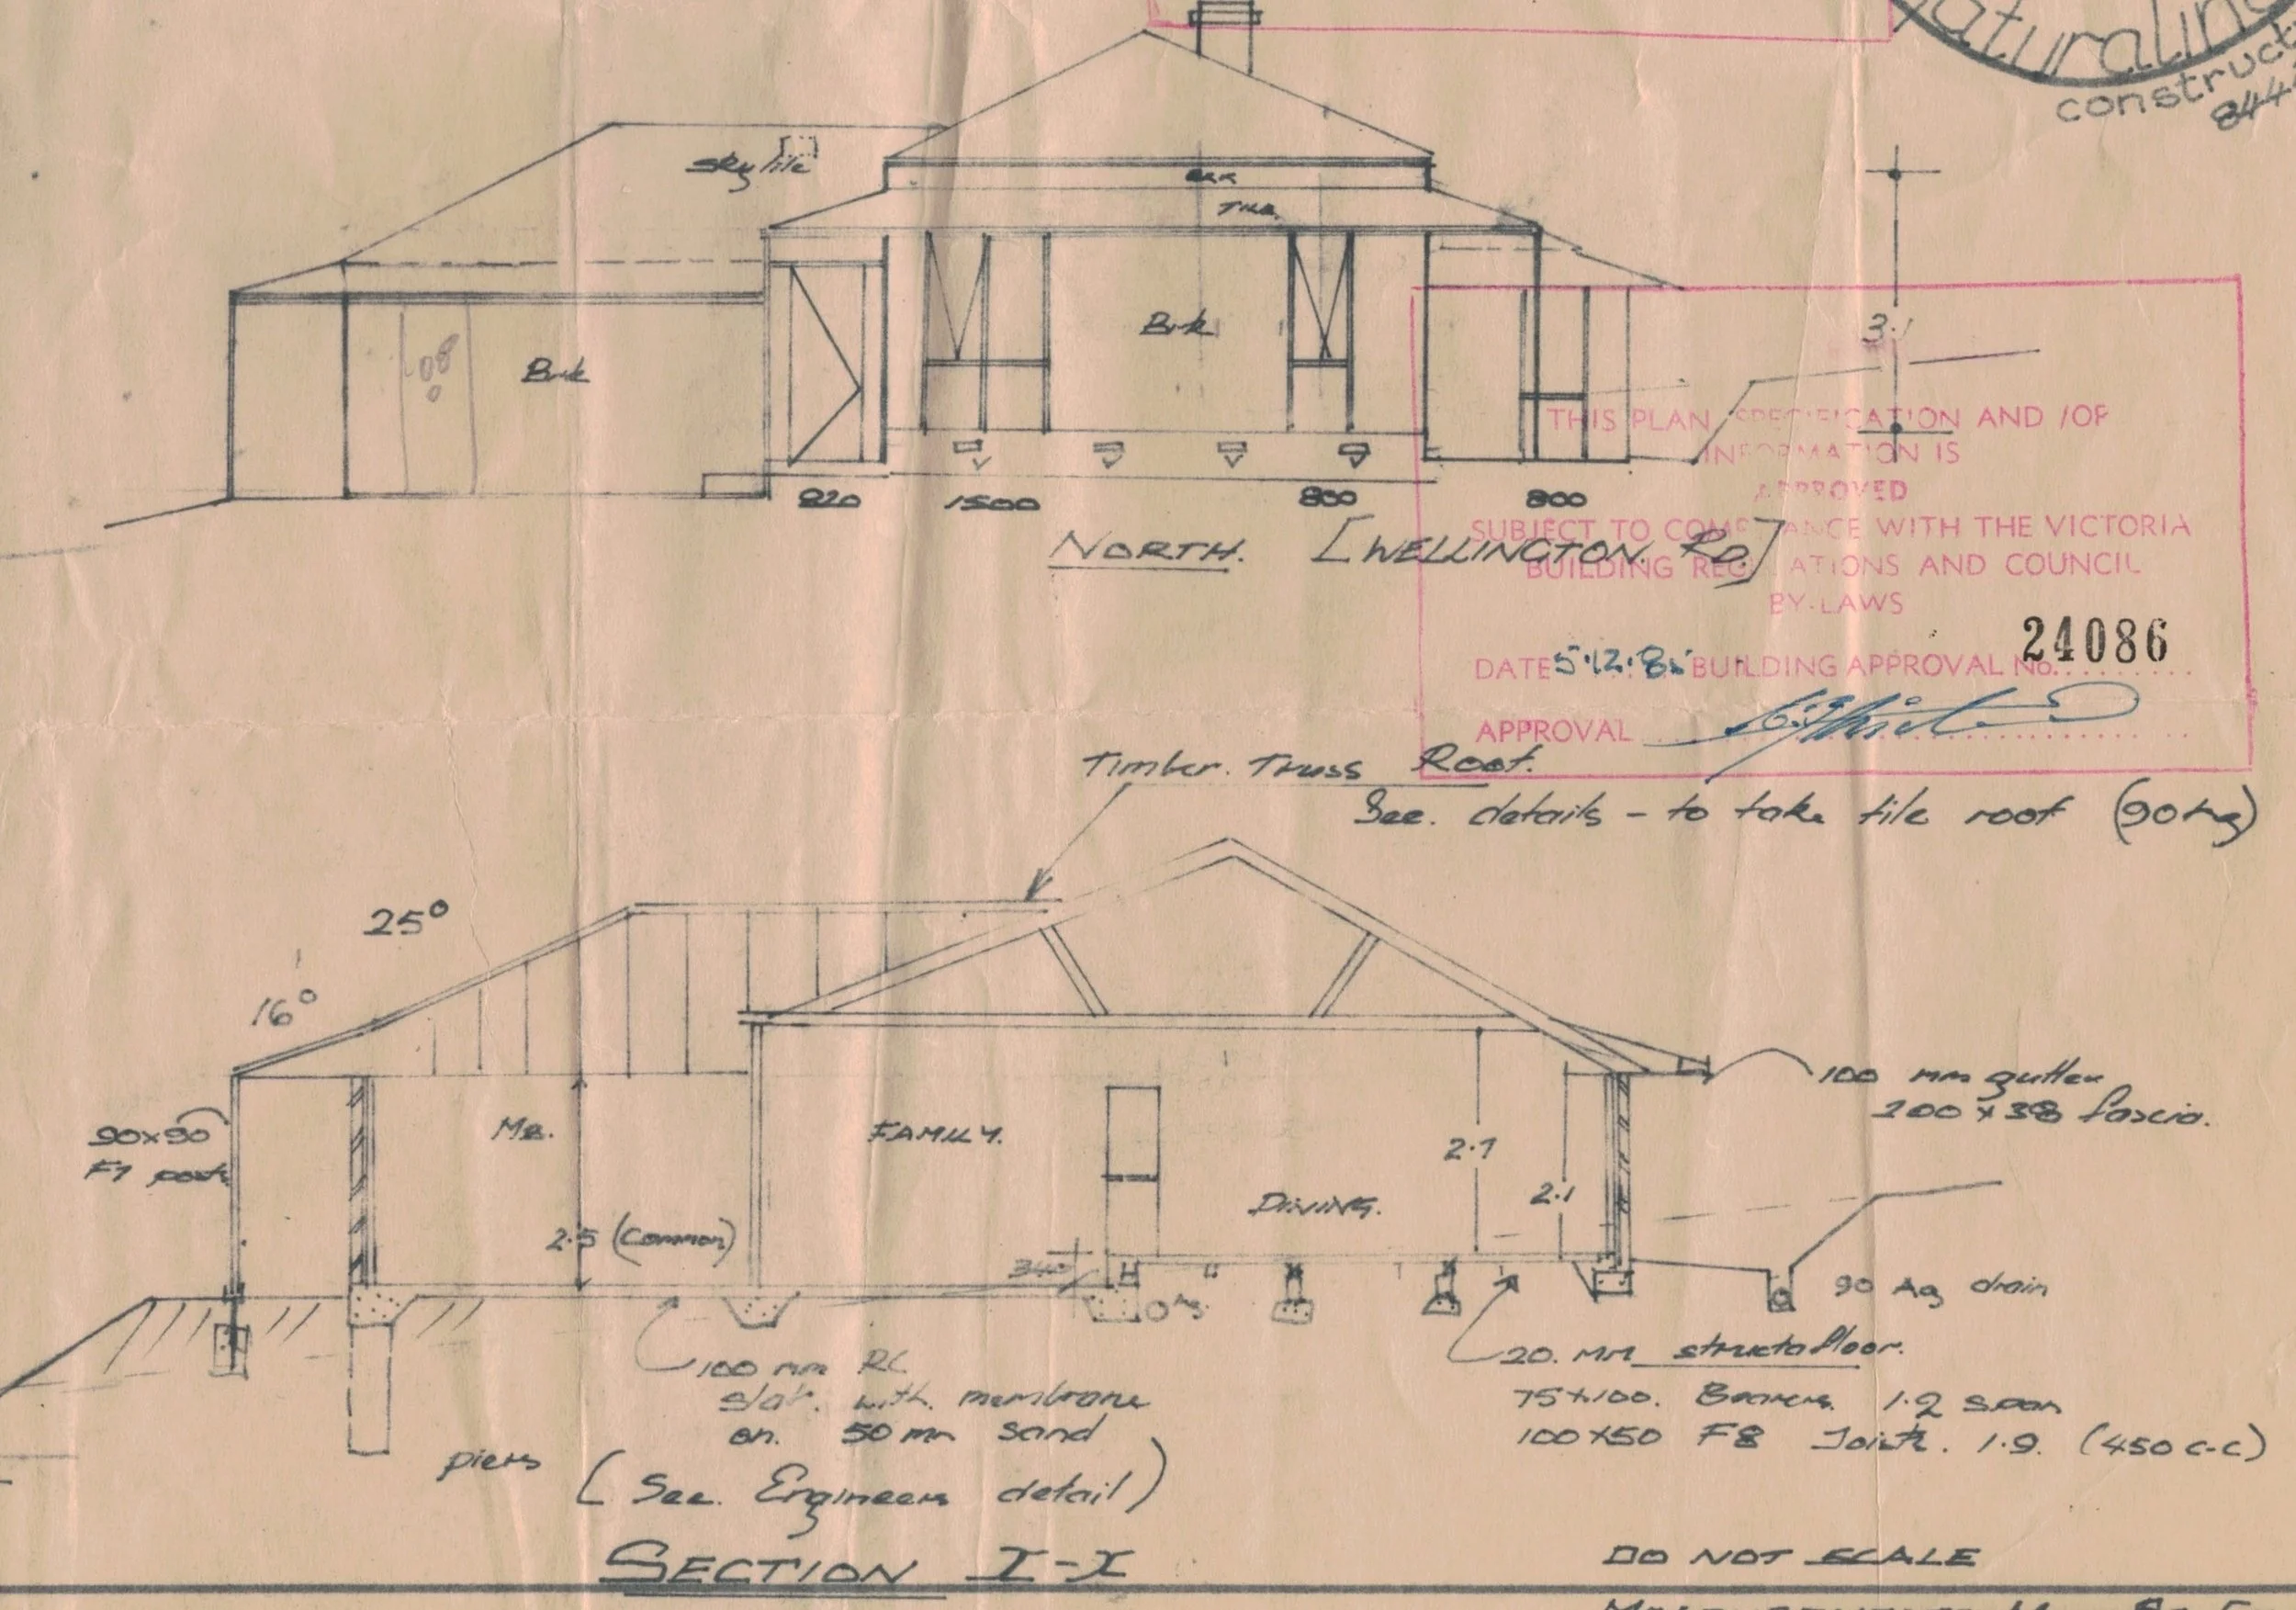 naturaline
construct
844
skylite
Brk
TILE
3.1
Brk
Brk
820 1500 800 800
NORTH. [WELLINGTON. RD.]
THIS PLAN SPECIFICATION AND /OR
INFORMATION IS
APPROVED
SUBJECT TO COMPLIANCE WITH THE VICTORIA
BUILDING REGULATIONS AND COUNCIL
BY-LAWS
DATE 5.12.85 BUILDING APPROVAL No. 24086
APPROVAL
Timber. Truss Roof.
See. details - to take tile roof (90kg)
25°
16°
90x90
F7 post
MB.
FAMILY.
DINING.
2.7
2.1
2.5 (Common)
340
100 mm gutter
200 x 38 fascia.
90 Ag drain
Ag.
100 mm RC
slab. with. membrane
on. 50 mm sand
piers (See. Engineers detail)
20. MM structafloor.
75x100. Bearers. 1.2 span
100x50 F8 Joists. 1.9. (450 c-c)
SECTION X-X
DO NOT SCALE